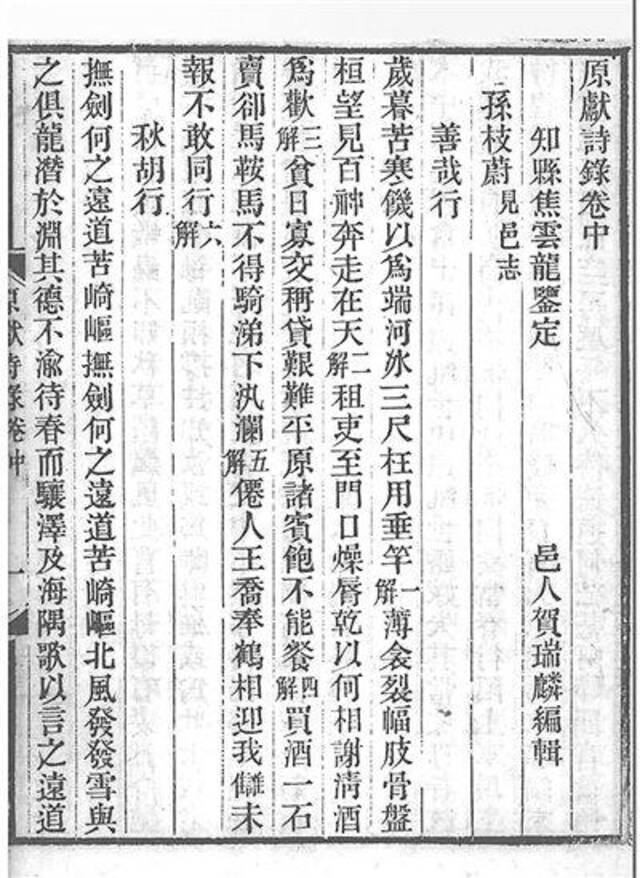 原獻詩錄卷中
知縣焦雲龍鑒定
邑人賀瑞麟編輯
孫枝蔚見邑志
善哉行
歲暮苦寒饑以爲端河氷三尺枉用垂竿一解薄衾裂幅肢骨盤
桓望見百神奔走在天二解租吏至門口燥唇乾以何相謝淸酒
爲歡三解貧日寡交稱貸艱難平原諸賓飽不能餐四解買酒一石
賣卻馬鞍馬不得騎涕下汍瀾五解僊人王喬奉鶴相迎我讎未
報不敢同行六解
秋胡行
撫劍何之遠道苦崎嶇撫劍何之遠道苦崎嶇北風發發雪與
之俱龍潛於淵其德不渝待春而驤澤及海隅歌以言之遠道
原獻詩錄卷中
一